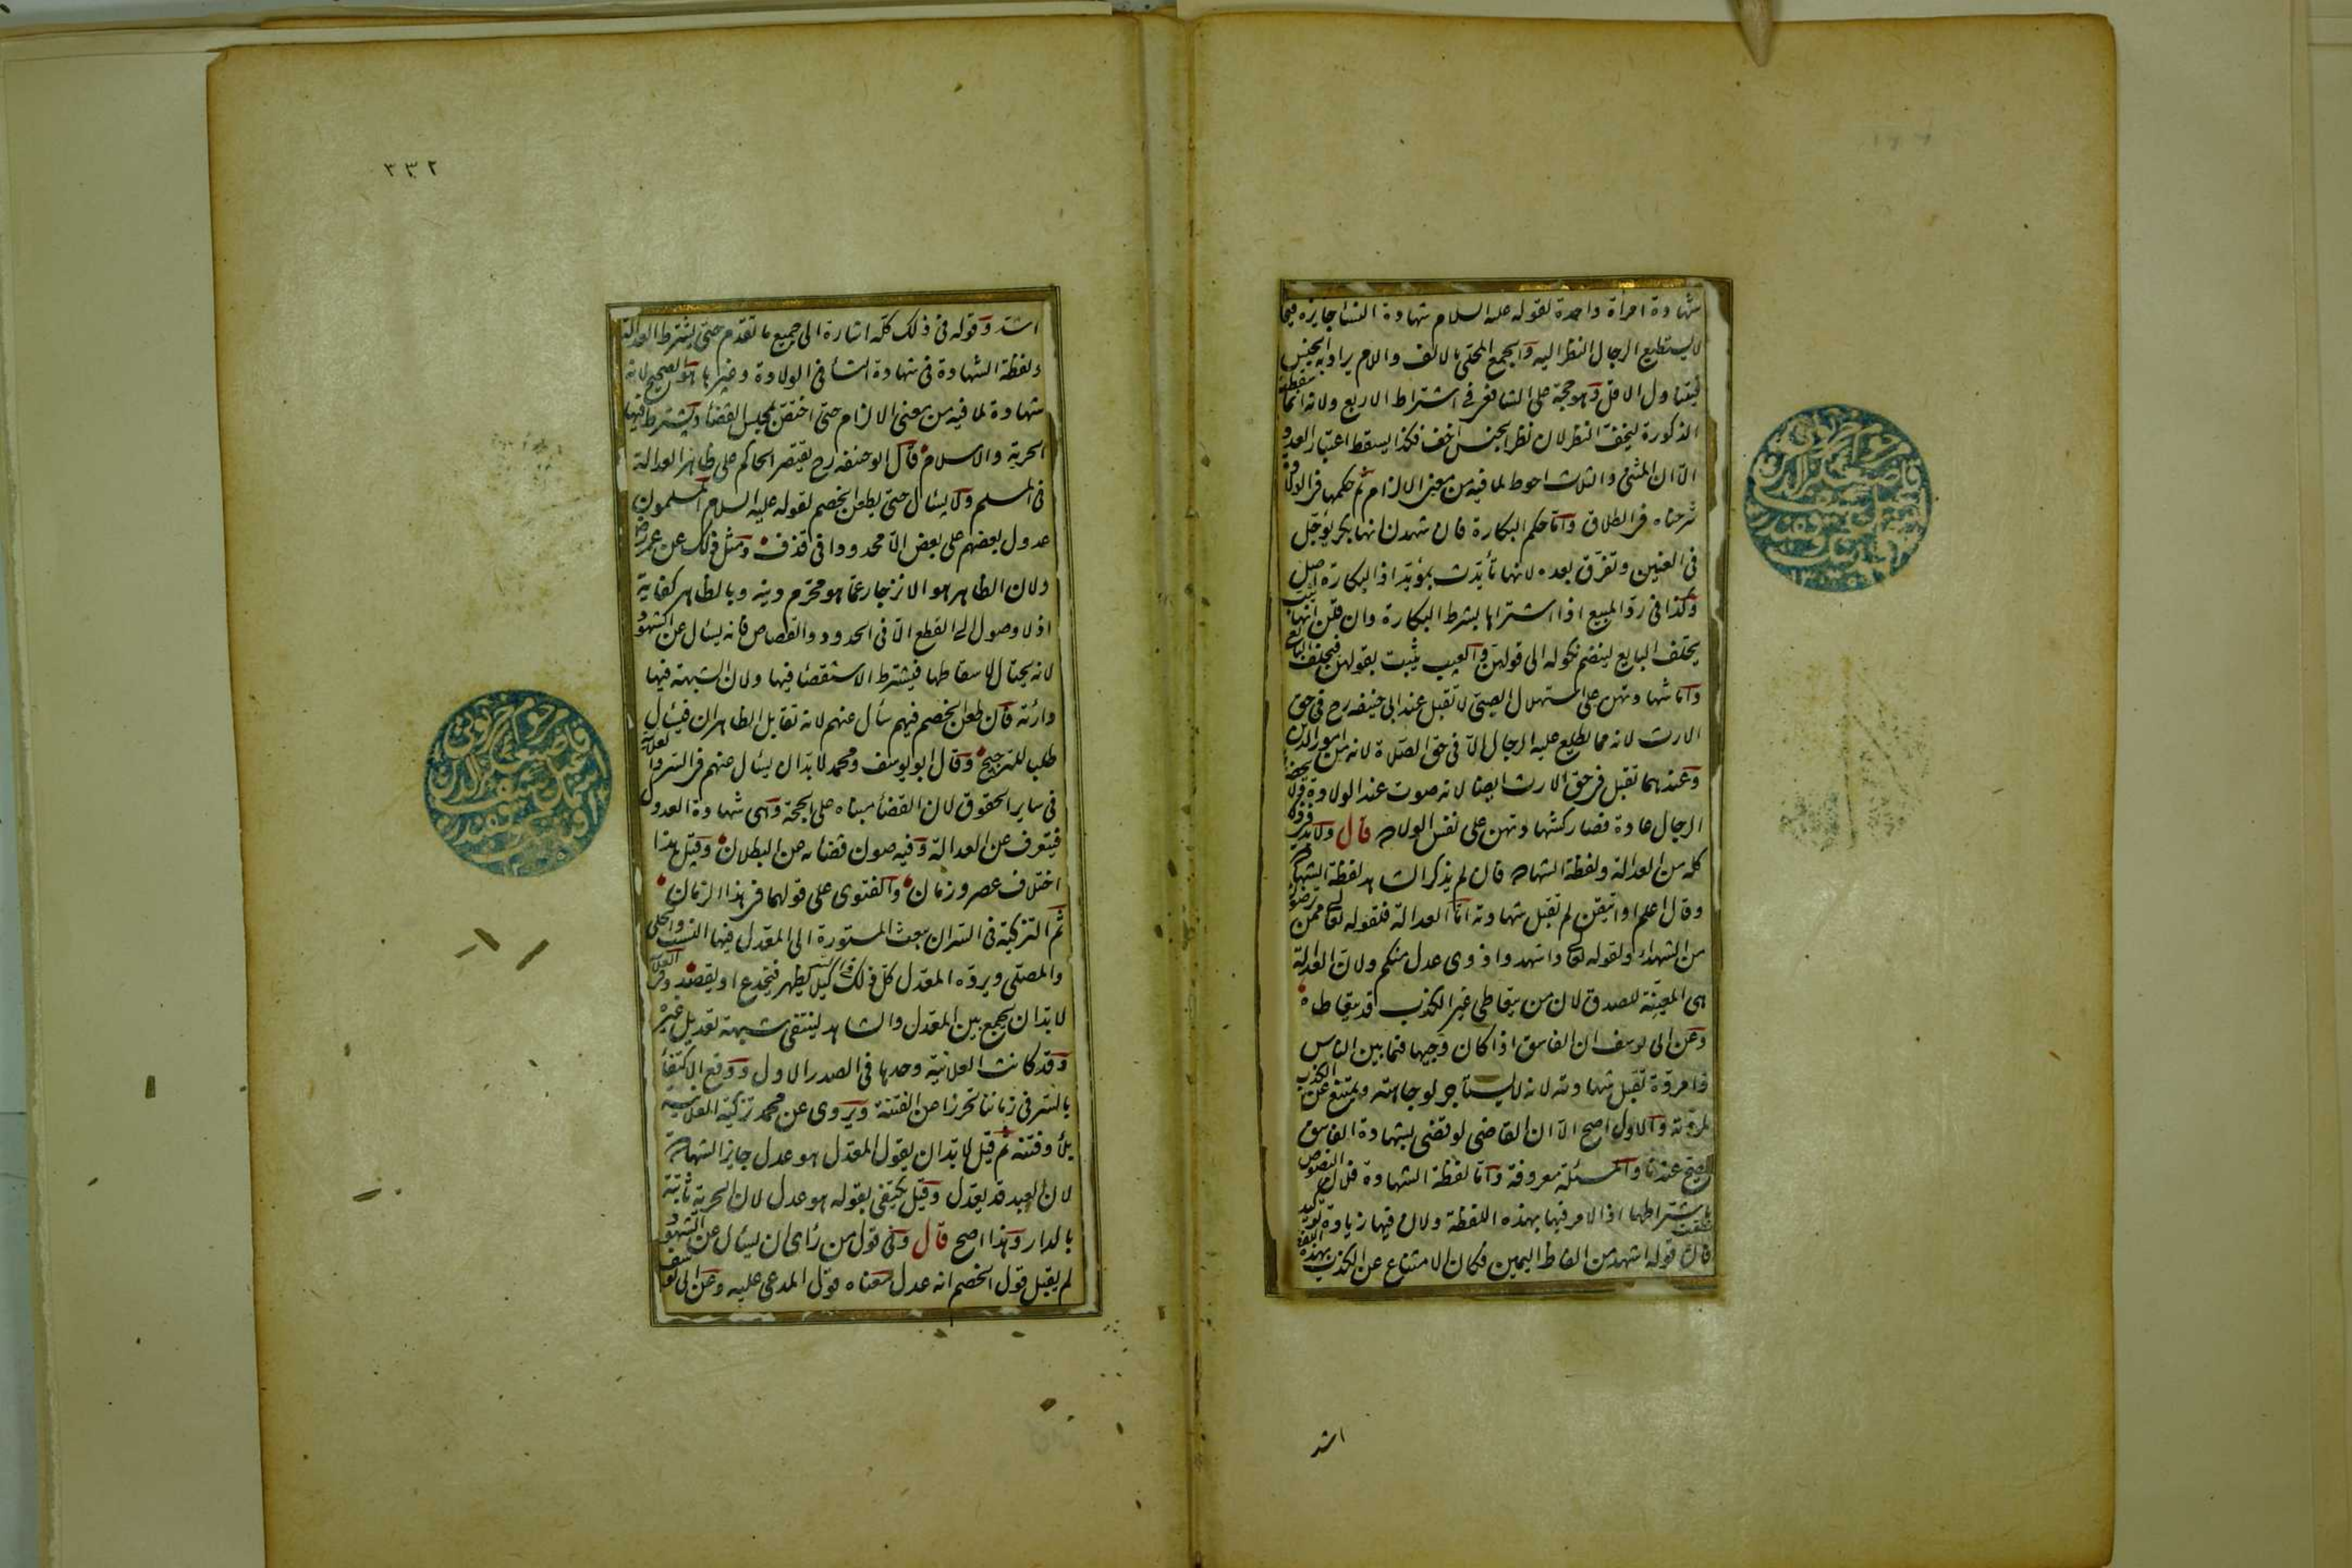 شهادة امرأة واحدة لقوله عليه السلام شهادة النسا جايزة فيما
لا يستطيع الرجال النظر اليه والجمع المحلى بالالف واللام يراد به الجنس
فيتناول الاقل وهو حجة على الشافعى فى اشتراط الاربع ولانه انما سقطت
الذكورة ليخف النظر لان نظر الجنس اخف فكذا يسقط اعتبار العدد
الا ان المثنى والثلاث احوط لما فيه من معنى الالزام ثم حكمها فى الولادة
شرحناه فى الطلاق واما حكم البكارة فان شهدن انها بكر يؤجل
فى العنين وتفرق بعده لانها تأيدت بمؤيد اذ البكارة اصل
وكذا فى رد المبيع اذا اشتراها بشرط البكارة وان قلن انها ثيب
يحلف البايع لينضم نكوله الى قولهن والعيب يثبت بقولهن فيحلف البايع
واما شهادتهن على استهلال الصبى لا تقبل عند ابى حنيفه رح فى حق
الارث لانه مما يطلع عليه الرجال الا فى حق الصلاة لانها من امور الدين
وعندهما تقبل فى حق الارث ايضا لانه صوت عند الولادة ولا يحضرها
الرجال عادة فصار كشهادتهن على نفس الولادة قال ولا بد فى ذلك
كله من العدالة ولفظة الشهادة فان لم يذكر الشاهد لفظة الشهادة
وقال اعلم او اتيقن لم تقبل شهادته اما العدالة فلقوله تعا ممن ترضون
من الشهداء ولقوله تعا واشهدوا ذوى عدل منكم ولان العدالة
هى المعينة للصدق لان من يتعاطى غير الكذب قد يتعاطاه
وعن ابى يوسف ان الفاسق اذا كان وجيها فيما بين الناس
ذا مروة تقبل شهادته لانه لا يستأجر لوجاهته ويمتنع عن الكذب
لمروته والاول اصح الا ان القاضى لو قضى بشهادة الفاسق
يصح عندنا والمسئلة معروفة واما لفظة الشهادة فلان النصوص نطقت
باشتراطها اذ الامر فيها بهذه اللفظة ولان فيها زيادة توكيد
فان قوله اشهد من الفاظ اليمين فكان الامتناع عن الكذب بهذه اللفظة
اشد
٣٣٢
اشد وقوله فى ذلك كله اشارة الى جميع ما تقدم حتى يشترط العدالة
ولفظة الشهادة فى شهادة النسأ فى الولادة وغيرها هو الصحيح لانه
شهادة لما فيه من معنى الالزام حتى اختص بمجلس القضأ ويشترط فيها
الحرية والاسلام قال ابو حنيفه رح يقتصر الحاكم على ظاهر العدالة
فى المسلم ولا يسئال حتى يطعن الخصم لقوله عليه السلام المسلمون
عدول بعضهم على بعض الا محدودا فى قذف ومثل ذلك عن عمر رض
ولان الظاهر هو الانزجار عما هو محرم دينه وبالظاهر كفاية
اذ لا وصول الى القطع الا فى الحدود والقصاص فانه يسئال عن الشهود
لانه يحتال لاسقاطها فيشترط الاستقصا فيها ولان الشبهة فيها
دارئة فان طعن الخصم فيهم سأل عنهم لانه تقابل الظاهران فيسئال
طلبا للترجيح وقال ابو يوسف ومحمد لا بد ان يسئال عنهم فى السر والعلانية
فى ساير الحقوق لان القضأ مبناه على الحجة وهى شهادة العدول
فيتعرف عن العدالة وفيه صون قضائه عن البطلان وقيل هذا
اختلاف عصر وزمان والفتوى على قولهما فى هذا الزمان
ثم التزكية فى السر ان يبعث المستورة الى المعدل فيها النسب والحلى
والمصلى ويرده المعدل كل ذلك فى السر كيلا يظهر فيخدع او يقصد وفى العلانية
لا بد ان يجمع بين المعدل والشاهد لينتفى شبهة تعديل غيره
وقد كانت العلانية وحدها فى الصدر الاول ووقع الاكتفأ
بالسر فى زماننا تحرزا عن الفتنة ويروى عن محمد تزكية العلانية
بلأ وفتنة ثم قيل لا بد ان يقول المعدل هو عدل جايز الشهادة
لان العبد قد يعدل وقيل يكتفى بقوله هو عدل لان الحرية ثابتة
بالدار وهذا اصح قال وفى قول من رأى ان يسئال عن الشهود
لم يقبل قول الخصم انه عدل معناه قول المدعى عليه وعن ابى يوسف